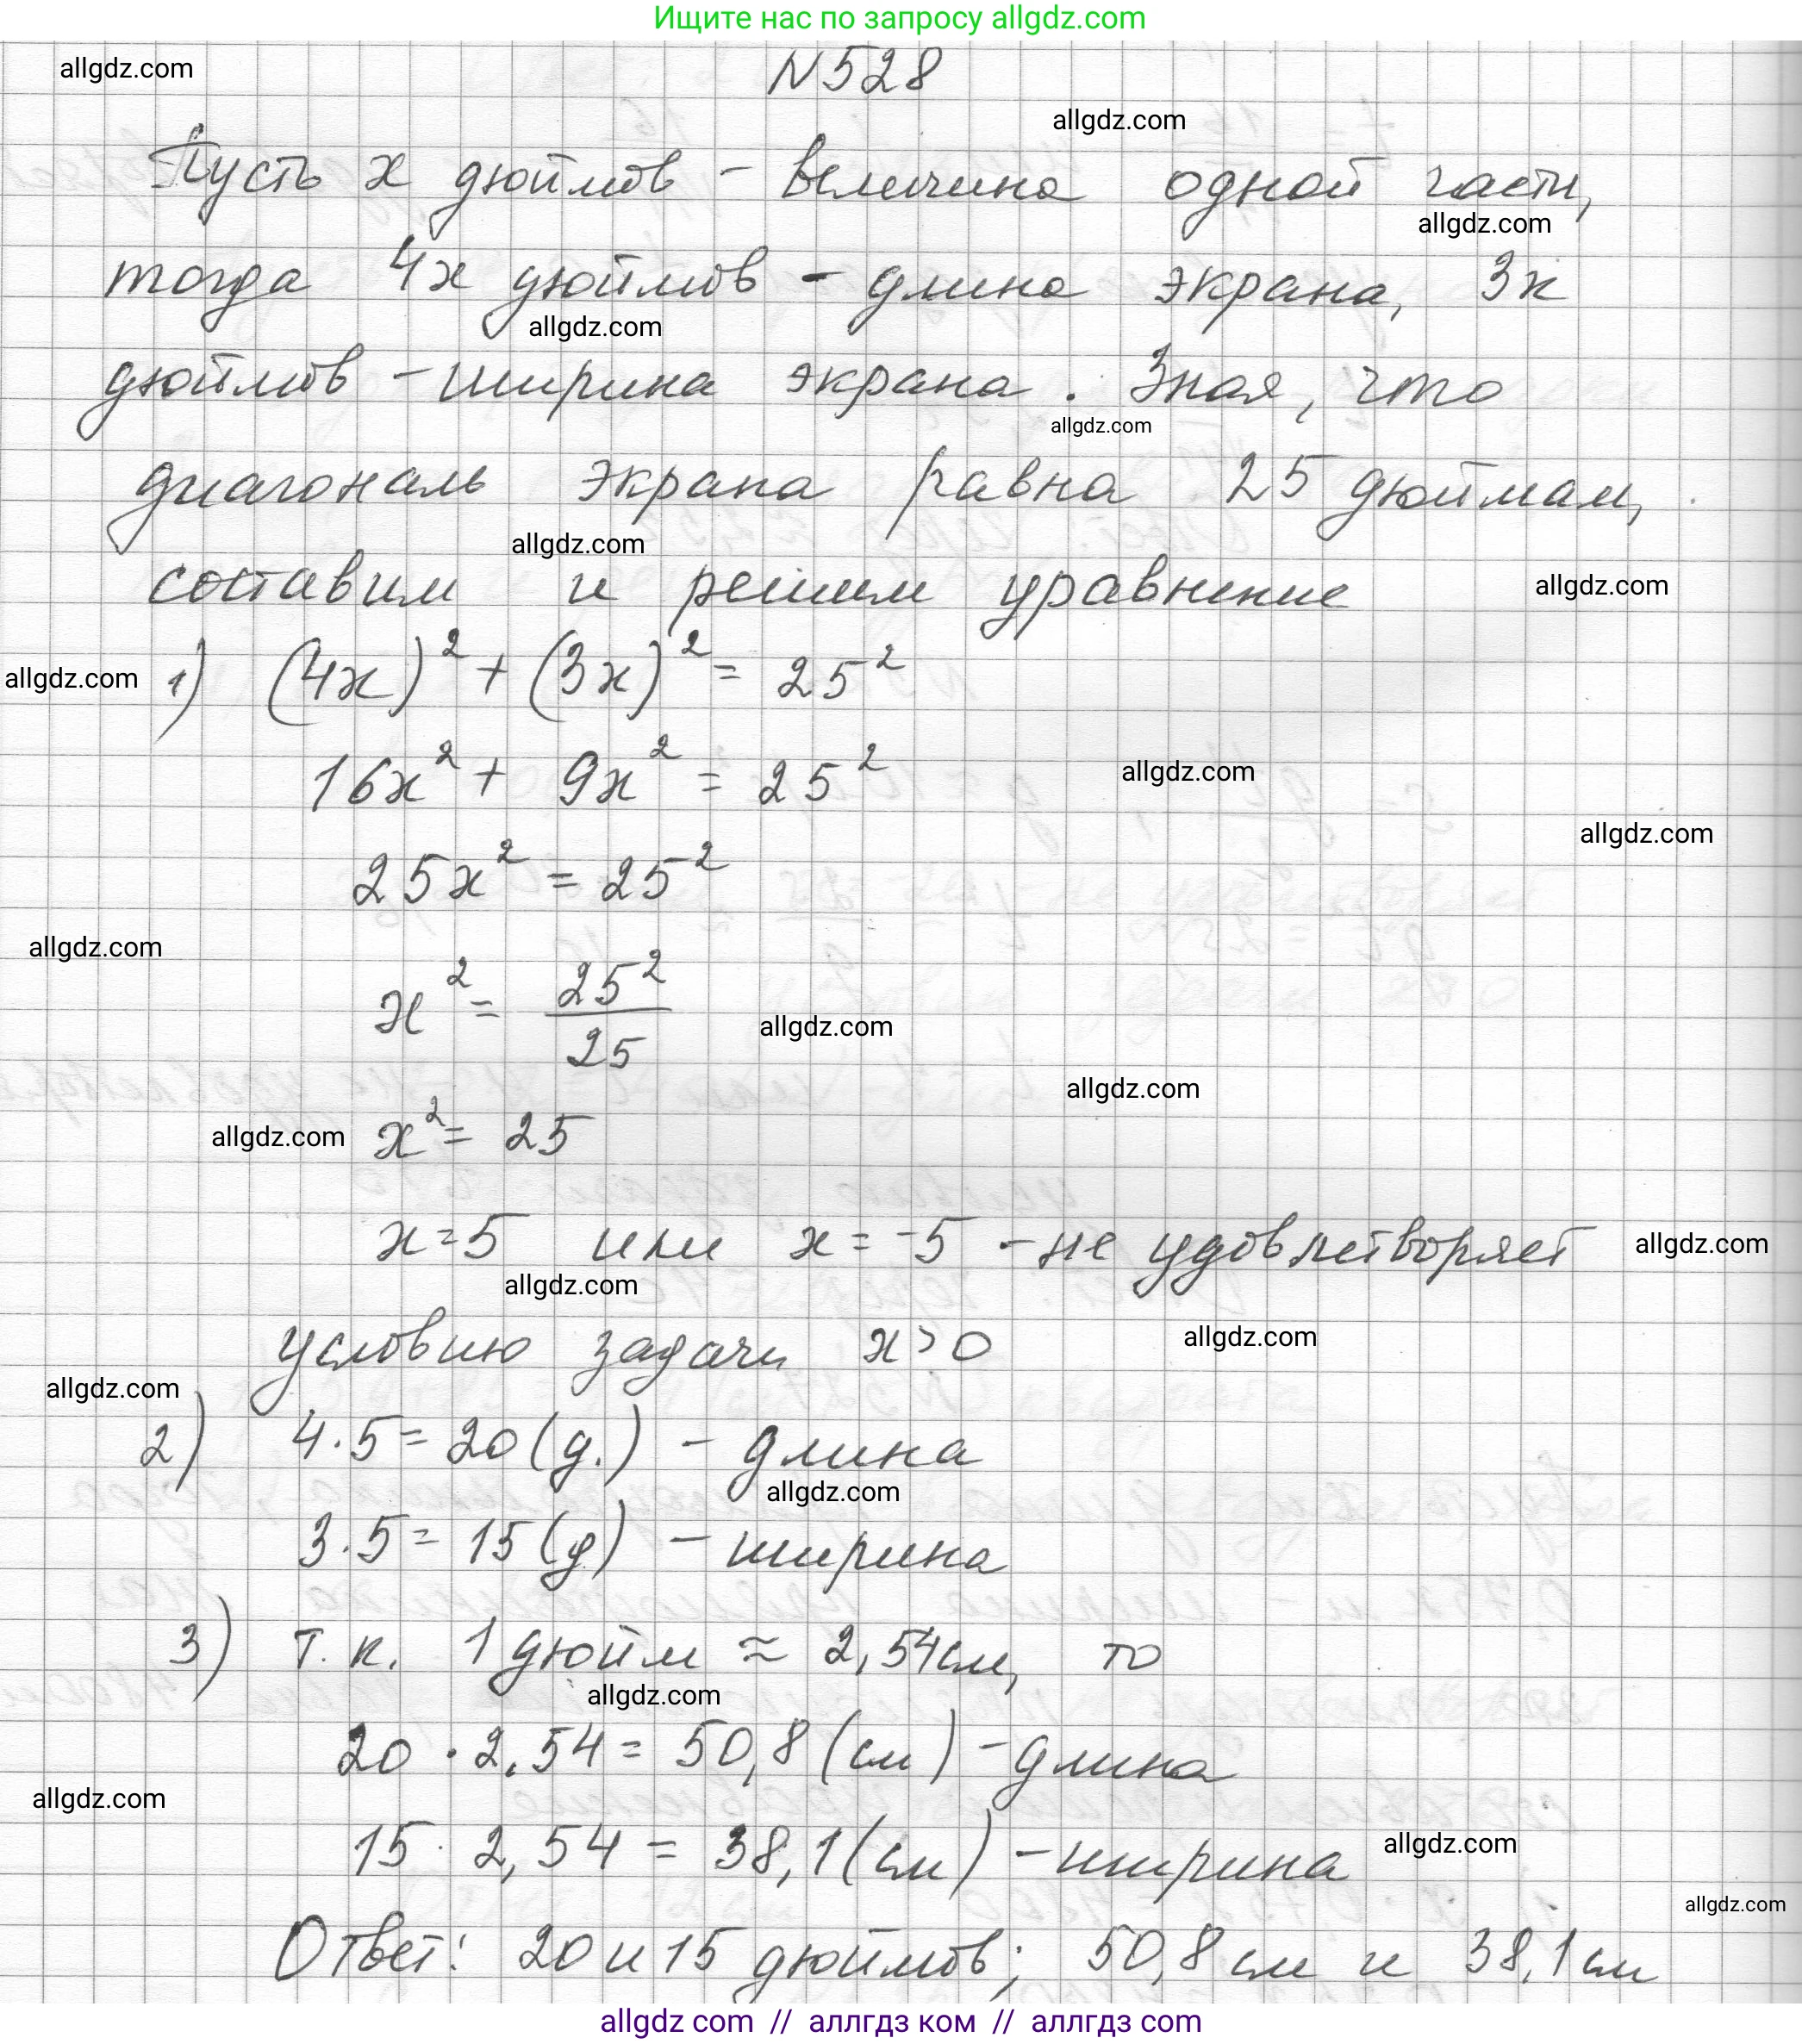 Ищите нас по запросу allgdz.com
N528
allgdz.com
allgdz.com
Пусть x дюймов - величина одной части,
allgdz.com
тогда 4x дюймов - длина экрана, 3x
allgdz.com
дюймов - ширина экрана. Зная, что
allgdz.com
диагональ экрана равна 25 дюймам,
allgdz.com
составим и решим уравнение
allgdz.com
allgdz.com
1) (4x)² + (3x)² = 25²
16x² + 9x² = 25²
allgdz.com
allgdz.com
25x² = 25²
allgdz.com
x² = 25²/25
allgdz.com
allgdz.com
allgdz.com
x² = 25
x = 5 или x = -5 - не удовлетворяет
allgdz.com
allgdz.com
условию задачи x > 0
allgdz.com
allgdz.com
2) 4·5 = 20 (д.) - длина
allgdz.com
3·5 = 15 (д) - ширина
3) т.к. 1 дюйм ≈ 2,54см, то
allgdz.com
20 · 2,54 = 50,8 (см) - длина
allgdz.com
15 · 2,54 = 38,1 (см) - ширина
allgdz.com
allgdz.com
Ответ: 20 и 15 дюймов; 50,8 см и 38,1 см
allgdz com // аллгдз ком // аллгдз com